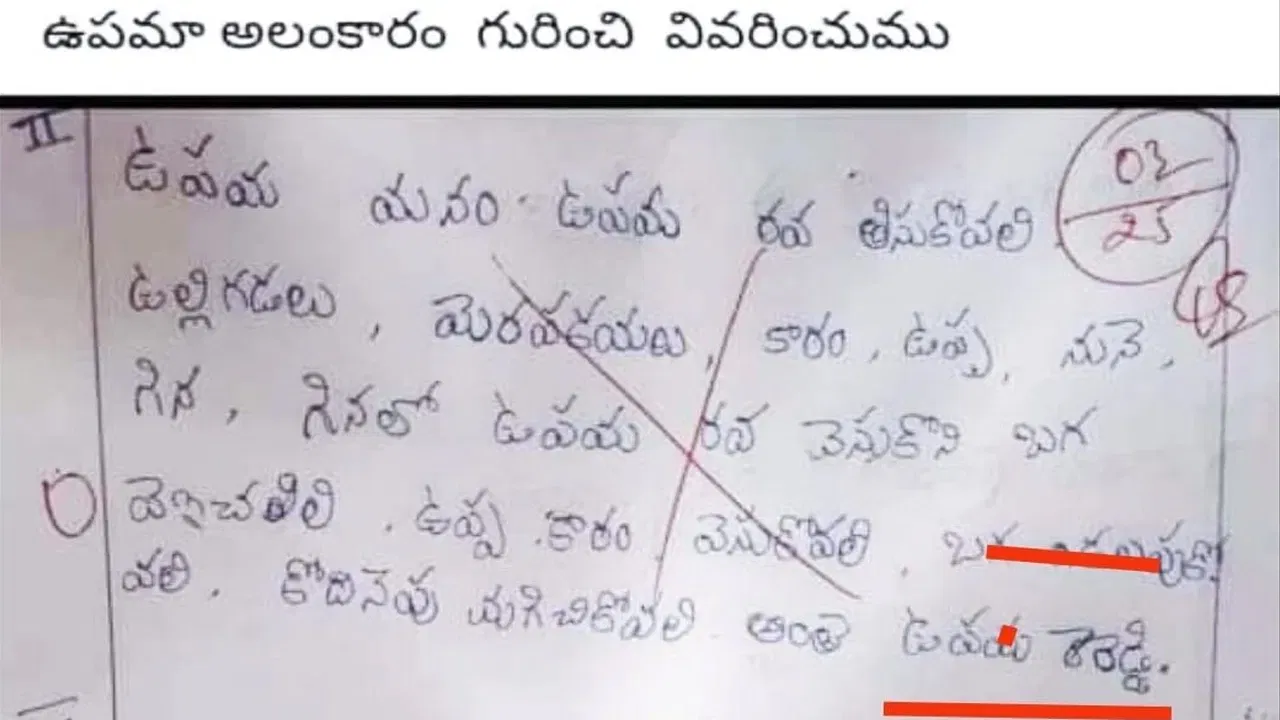 ఉపమా అలంకారం గురించి వివరించుము
II
ఉపమ మనం ఉపమ రవ తిసుకొవలి
02/25
ఉల్లిగడలు , మెరపకయలు , కారం , ఉప్పు , నునె ,
గిన , గినలో ఉపమ రవ వెసుకొని బగ
0
ఉప్పు .కారం వెసుకొవలి . బగ
వలి . కోదిసెపు మగిచికోవలి అంతె ఉపమ రెఢి.